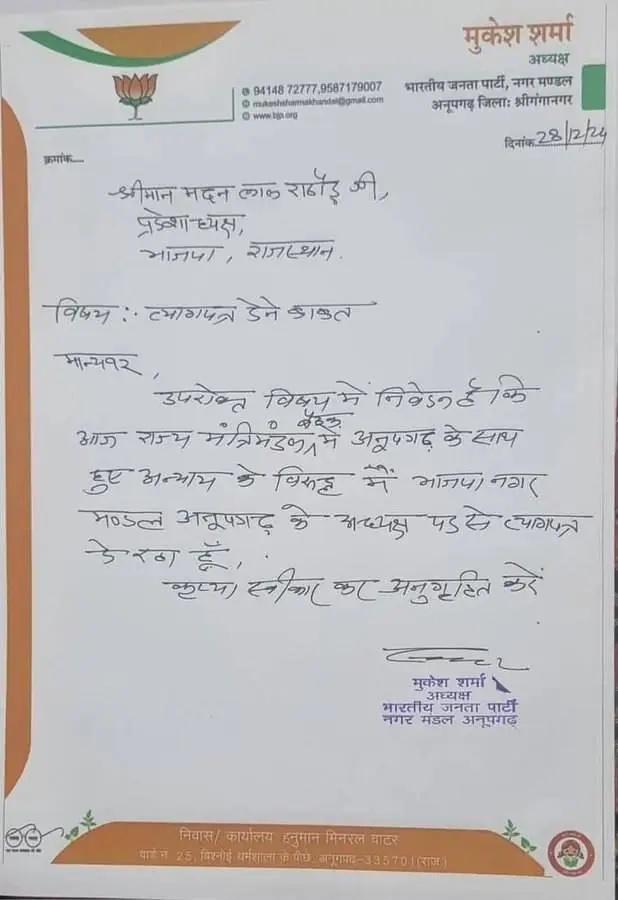 मुकेश शर्मा
अध्यक्ष
भारतीय जनता पार्टी, नगर मण्डल
अनूपगढ़ जिला: श्रीगंगानगर
94148 72777,9587179007
mukeshsharmakhandal@gmail.com
www.bjp.org
दिनांक 28/12/24
क्रमांक....
श्रीमान मदन लाल राठौड़ जी,
प्रदेशाध्यक्ष,
भाजपा, राजस्थान.
विषय :- त्यागपत्र देने बाबत
मान्यवर,
उपरोक्त विषय में निवेदन है कि
आज राज्य मंत्रिमंडल बैठक में अनूपगढ़ के साथ
हुए अन्याय के विरुद्ध मैं भाजपा नगर
मण्डल अनूपगढ़ के अध्यक्ष पद से त्यागपत्र
दे रहा हूँ,
कृप्या स्वीकार कर अनुगृहित करें
मुकेश शर्मा
अध्यक्ष
भारतीय जनता पार्टी
नगर मंडल अनूपगढ़
निवास/ कार्यालय हनुमान मिनरल वाटर
वार्ड न. 25, बिश्नोई धर्मशाला के पीछे, अनूपगढ़-335701(राज.)